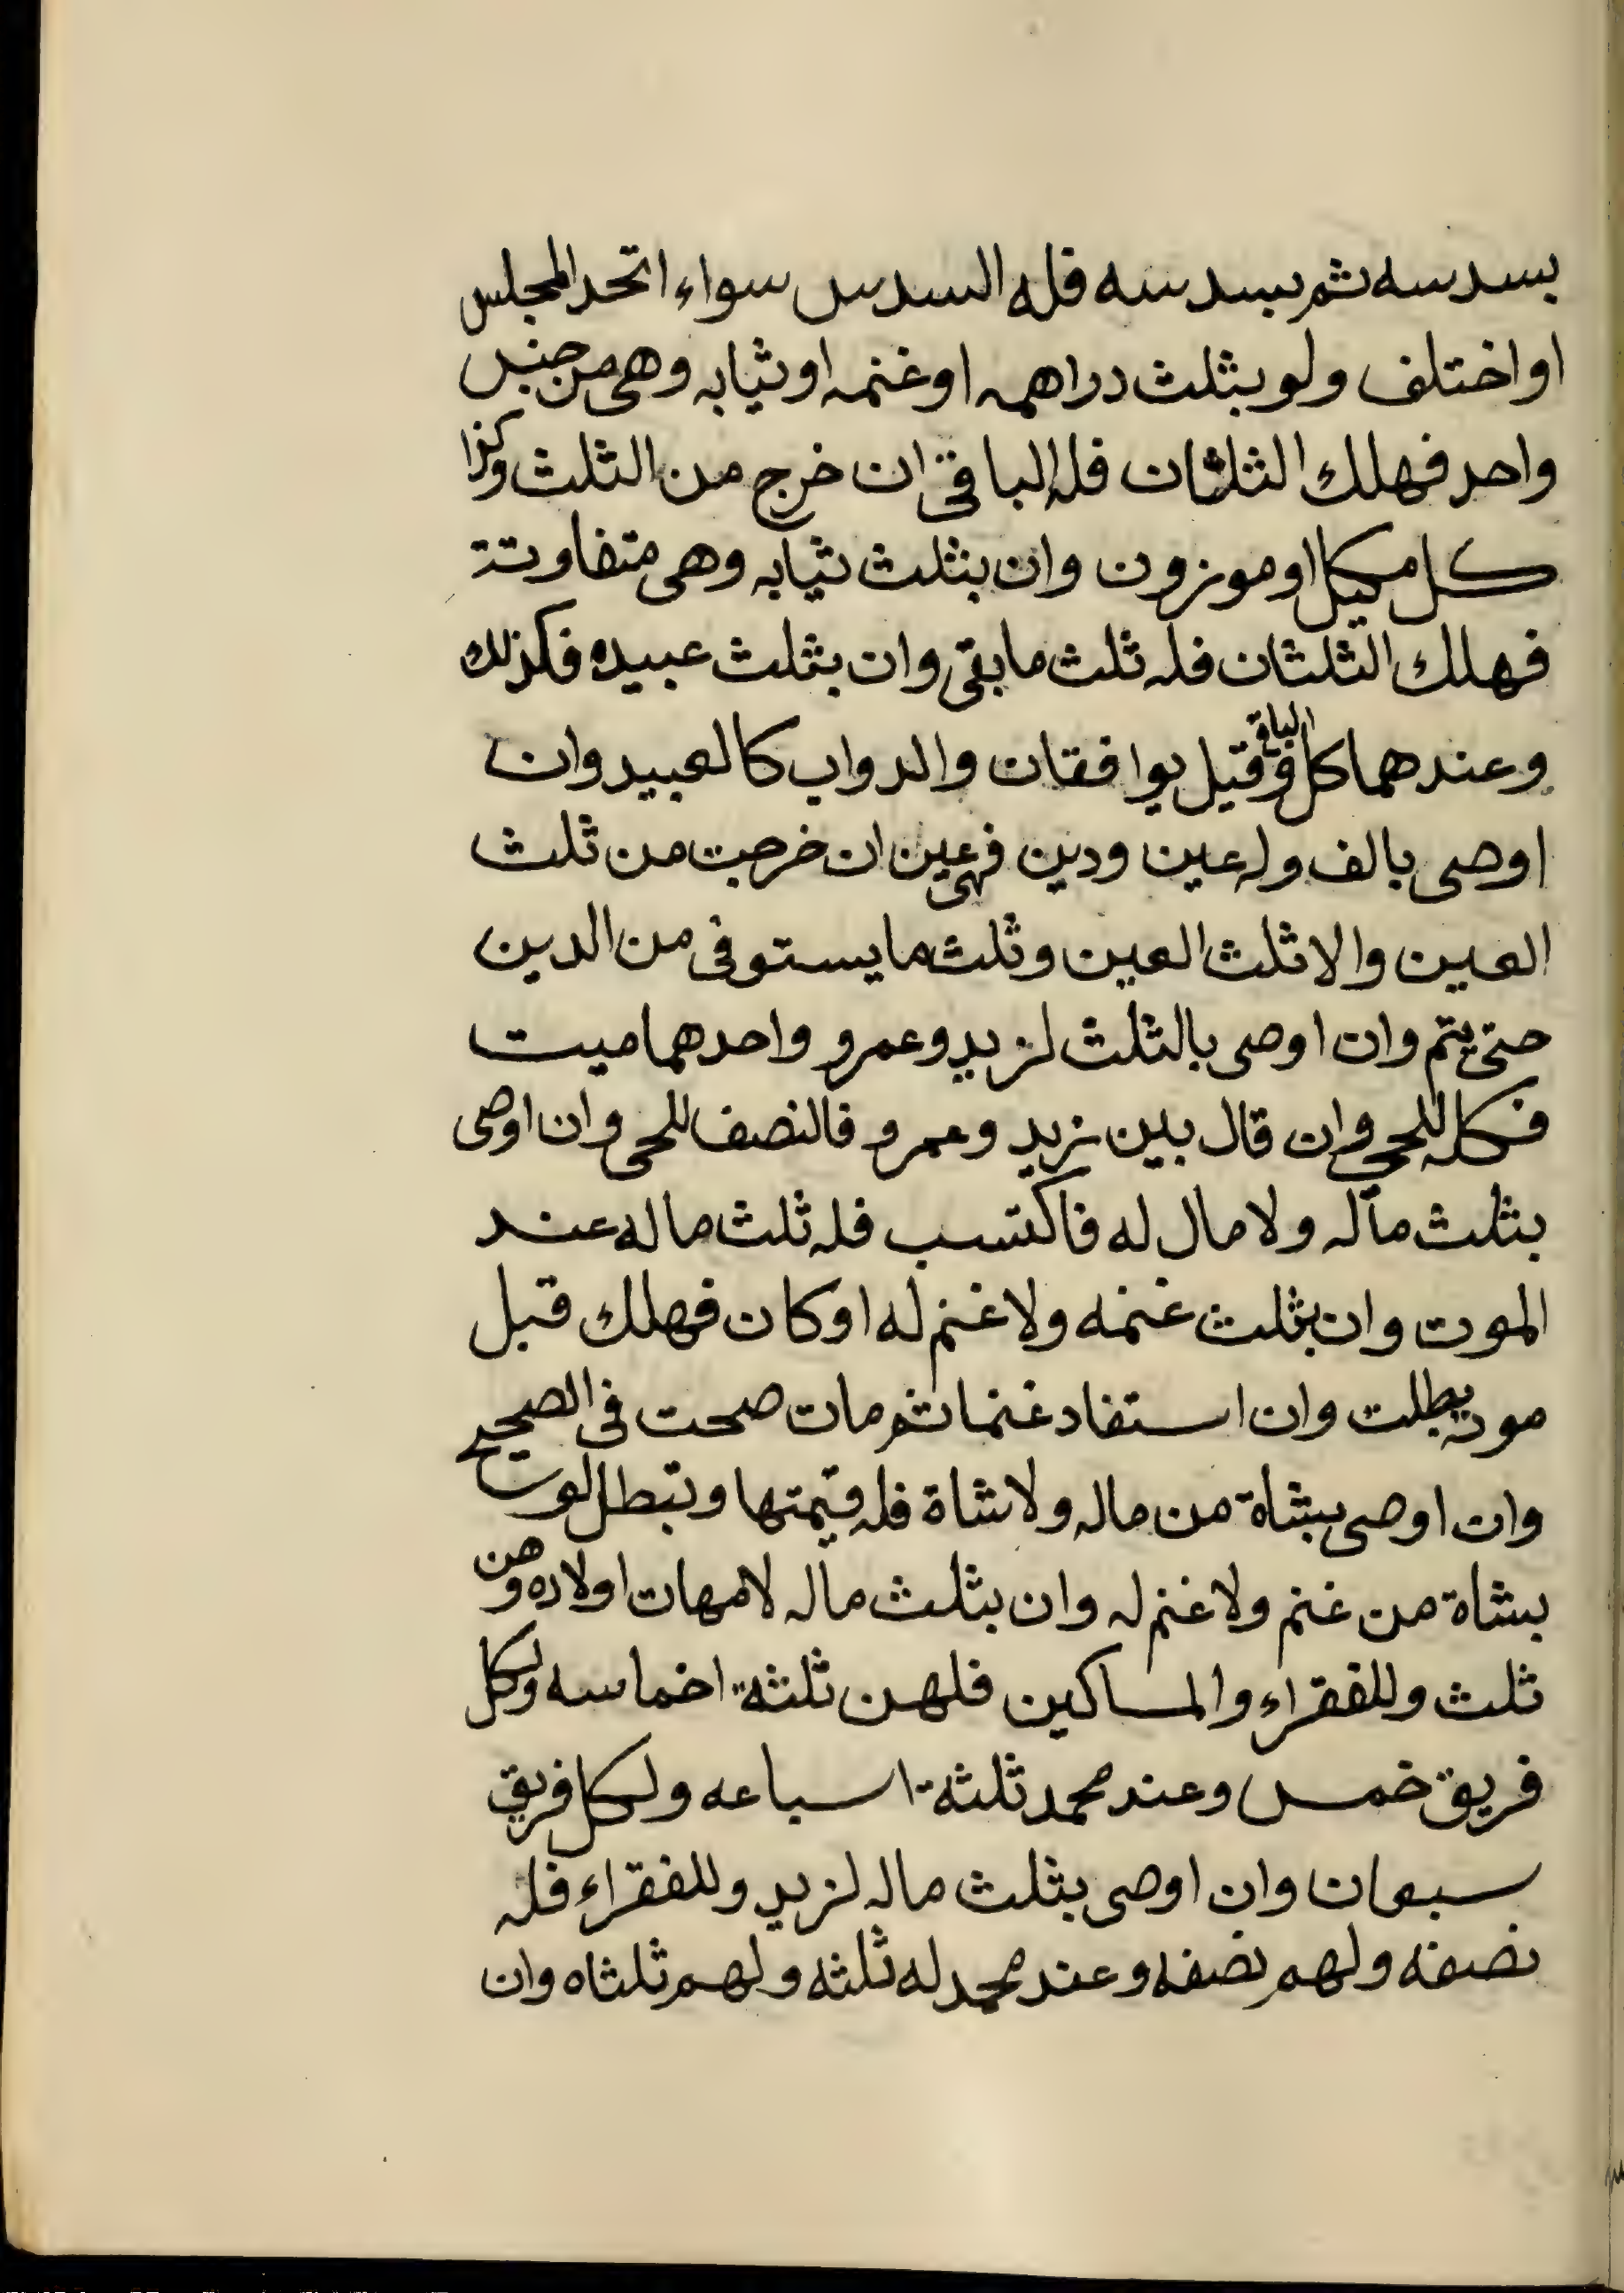 بسدسه ثم بسدسه فله السدس سواء اتحد المجلس
او اختلف ولو بثلث دراهمه او غنمه او ثيابه وهى من جنس
واحد فهلك الثلثان فله الباقى ان خرج من الثلث وكذا
كل مكيل او موزون وان بثلث ثيابه وهى متفاوتة
فهلك الثلثان فله ثلث ما بقى وان بثلث عبيده فكذلك
وعندهما كل الباقى وقيل يوافقان والدواب كالعبيد وان
اوصى بالف وله عين ودين فهى عين ان خرجت من ثلث
العين والا ثلث العين وثلث ما يستوفى من الدين
حتى يتم وان اوصى بالثلث لزيد وعمرو واحدهما ميت
فكله للحى وان قال بين زيد وعمرو فالنصف للحى وان اوصى
بثلث ماله ولا مال له فاكتسب فله ثلث ماله عند
الموت وان بثلث غنمه ولا غنم له او كان فهلك قبل
موته بطلت وان استفاد غنما ثم مات صحت فى الصحيح
وان اوصى بشاة من ماله ولا شاة فله قيمتها وتبطل لو
بشاة من غنم ولا غنم له وان بثلث ماله لامهات اولاده وهن
ثلث وللفقراء والمساكين فلهن ثلثة اخماسه ولكل
فريق خمس وعند محمد ثلثة اسباعه ولكل فريق
سبعان وان اوصى بثلث ماله لزيد وللفقراء فله
نصفه ولهم نصفه وعند محمد له ثلثه ولهم ثلثاه وان